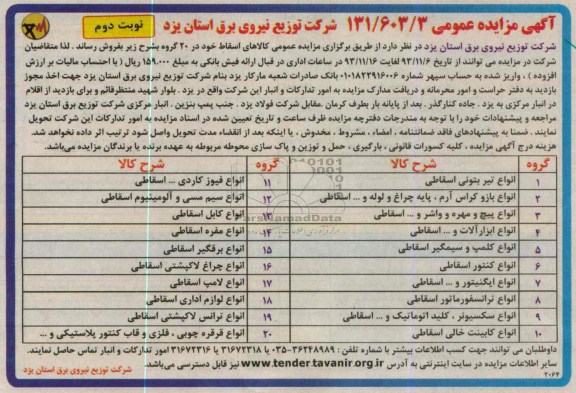 آگهی مزایده عمومی ۱۳۱/۶۰۳/۳ شرکت توزیع نیروی برق استان یزد
نوبت دوم
شرکت توزیع نیروی برق استان یزد در نظر دارد از طریق برگزاری مزایده عمومی کالاهای اسقاط خود در ۲۰ گروه بشرح زیر بفروش رساند . لذا متقاضیان
شرکت در مزایده می توانند از تاریخ ۹۳/۱۱/۶ لغایت ۹۳/۱۱/۱۶ در ساعات اداری در قبال ارائه فیش بانکی به مبلغ ۱۵۹.۰۰۰ ریال ( با احتساب مالیات بر ارزش
افزوده ) ، واریز شده به حساب سپهر شماره ۰۱۰۱۸۲۲۹۱۶۰۰۶ بانک صادرات شعبه مارکار یزد بنام شرکت توزیع برق استان یزد جهت اخذ مجوز
بازدید به دفتر حراست و امور محرمانه و دریافت مدارک مزایده به امور تدارکات و انبار این شرکت واقع در یزد . بلوار شهید منتظرقائم و برای بازدید از اقلام
در انبار مرکزی به یزد . جاده کنارگذر . بعد از پایانه بار بطرف کرمان .مقابل شرکت فولاد یزد . جنب پمپ بنزین . انبار مرکزی شرکت توزیع برق استان یزد
مراجعه و پیشنهادات خود را با توجه به مندرجات دفترچه مزایده ظرف ساعت و تاریخ تعیین شده در اسناد مزایده به امور تدارکات این شرکت تحویل
نمایند . ضمنا به پیشنهادهای فاقد ضمانتنامه ، امضاء ، مشروط ، مخدوش ، یا اینکه بعد از انقضاء مدت تحویل واصل شود ترتیب اثر داده نخواهد شد.
هزینه درج آگهی مزایده ، کلیه کسورات قانونی ، بارگیری ، حمل و توزین و پاک سازی محوطه مربوطه به عهده برنده یا برندگان مزایده می‌باشد.
گروه شرح کالا گروه شرح کالا
۱ انواع تیر بتونی اسقاطی ۱۱ انواع فیوز کاردی ... اسقاطی
۲ انواع بازو کراس آرم ، پایه چراغ و لوله و ... اسقاطی ۱۲ انواع سیم مسی و آلومینیوم اسقاطی
۳ انواع پیچ و مهره و واشر و ... اسقاطی ۱۳ انواع کابل اسقاطی
۴ انواع ابزارآلات و ... اسقاطی ۱۴ انواع مقره اسقاطی
۵ انواع کلمپ و سیمگیر اسقاطی ۱۵ انواع برقگیر اسقاطی
۶ انواع کنتور اسقاطی ۱۶ انواع چراغ لاکپشتی اسقاطی
۷ انواع ایگنیتور و ... اسقاطی ۱۷ انواع لامپ اسقاطی
۸ انواع ترانسفورماتور اسقاطی ۱۸ انواع لوازم اداری اسقاطی
۹ انواع سکسیونر ، کلید اتوماتیک و ... اسقاطی ۱۹ انواع ترانس لاکپشتی اسقاطی
۱۰ انواع کابینت خالی اسقاطی ۲۰ انواع قرقره چوبی ، فلزی و قاب کنتور پلاستیکی و ...
داوطلبان می توانند جهت کسب اطلاعات بیشتر با شماره تلفن : ۳۶۲۴۸۹۸۹-۰۳۵ یا ۳۱۶۷۲۳۱۸ یا ۳۱۶۷۲۳۱۶ امور تدارکات و انبار تماس حاصل نمایند.
سایر اطلاعات مزایده در سایت اینترنتی به آدرس www.tender.tavanir.org.ir نیز قابل دسترسی می‌باشد.
شرکت توزیع نیروی برق استان یزد
۲۰۶۴